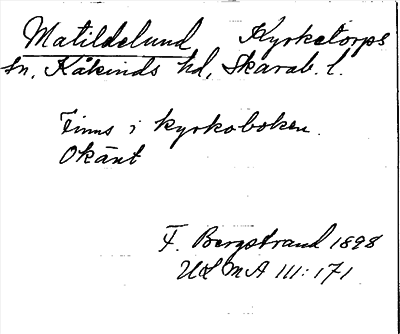 Matildelund Kyrketorps
sn, Kåkinds hd, Skarab. l.
Finns i kyrkoboken.
Okänt
F. Bergstrand 1898
ULMA 111:171